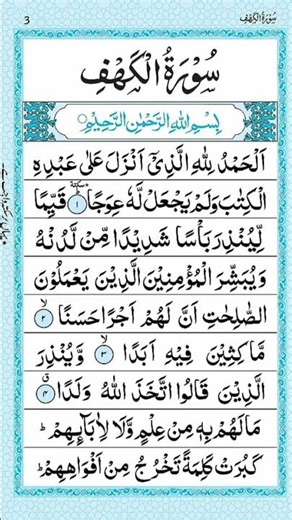 3 سُوْرَةُ الْكَهْفِ
سُوْرَةُ الْكَهْفِ
بِسْمِ اللّٰهِ الرَّحْمٰنِ الرَّحِيْمِ
اَلْحَمْدُ لِلّٰهِ الَّذِيْۤ اَنْزَلَ عَلٰى عَبْدِهِ
الْكِتٰبَ وَلَمْ يَجْعَلْ لَّهٗ عِوَجًا ۜ ١ قَيِّمًا
لِّيُنْذِرَ بَاْسًا شَدِيْدًا مِّنْ لَّدُنْهُ
وَيُبَشِّرَ الْمُؤْمِنِيْنَ الَّذِيْنَ يَعْمَلُوْنَ
الصّٰلِحٰتِ اَنَّ لَهُمْ اَجْرًا حَسَنًا ۙ ٢
مَّاكِثِيْنَ فِيْهِ اَبَدًا ۙ ٣ وَّيُنْذِرَ
الَّذِيْنَ قَالُوا اتَّخَذَ اللّٰهُ وَلَدًا ٤ ق
مَا لَهُمْ بِهٖ مِنْ عِلْمٍ وَّلَا لِاٰبَآئِهِمْ ؕ
كَبُرَتْ كَلِمَةً تَخْرُجُ مِنْ اَفْوَاهِهِمْ ؕ